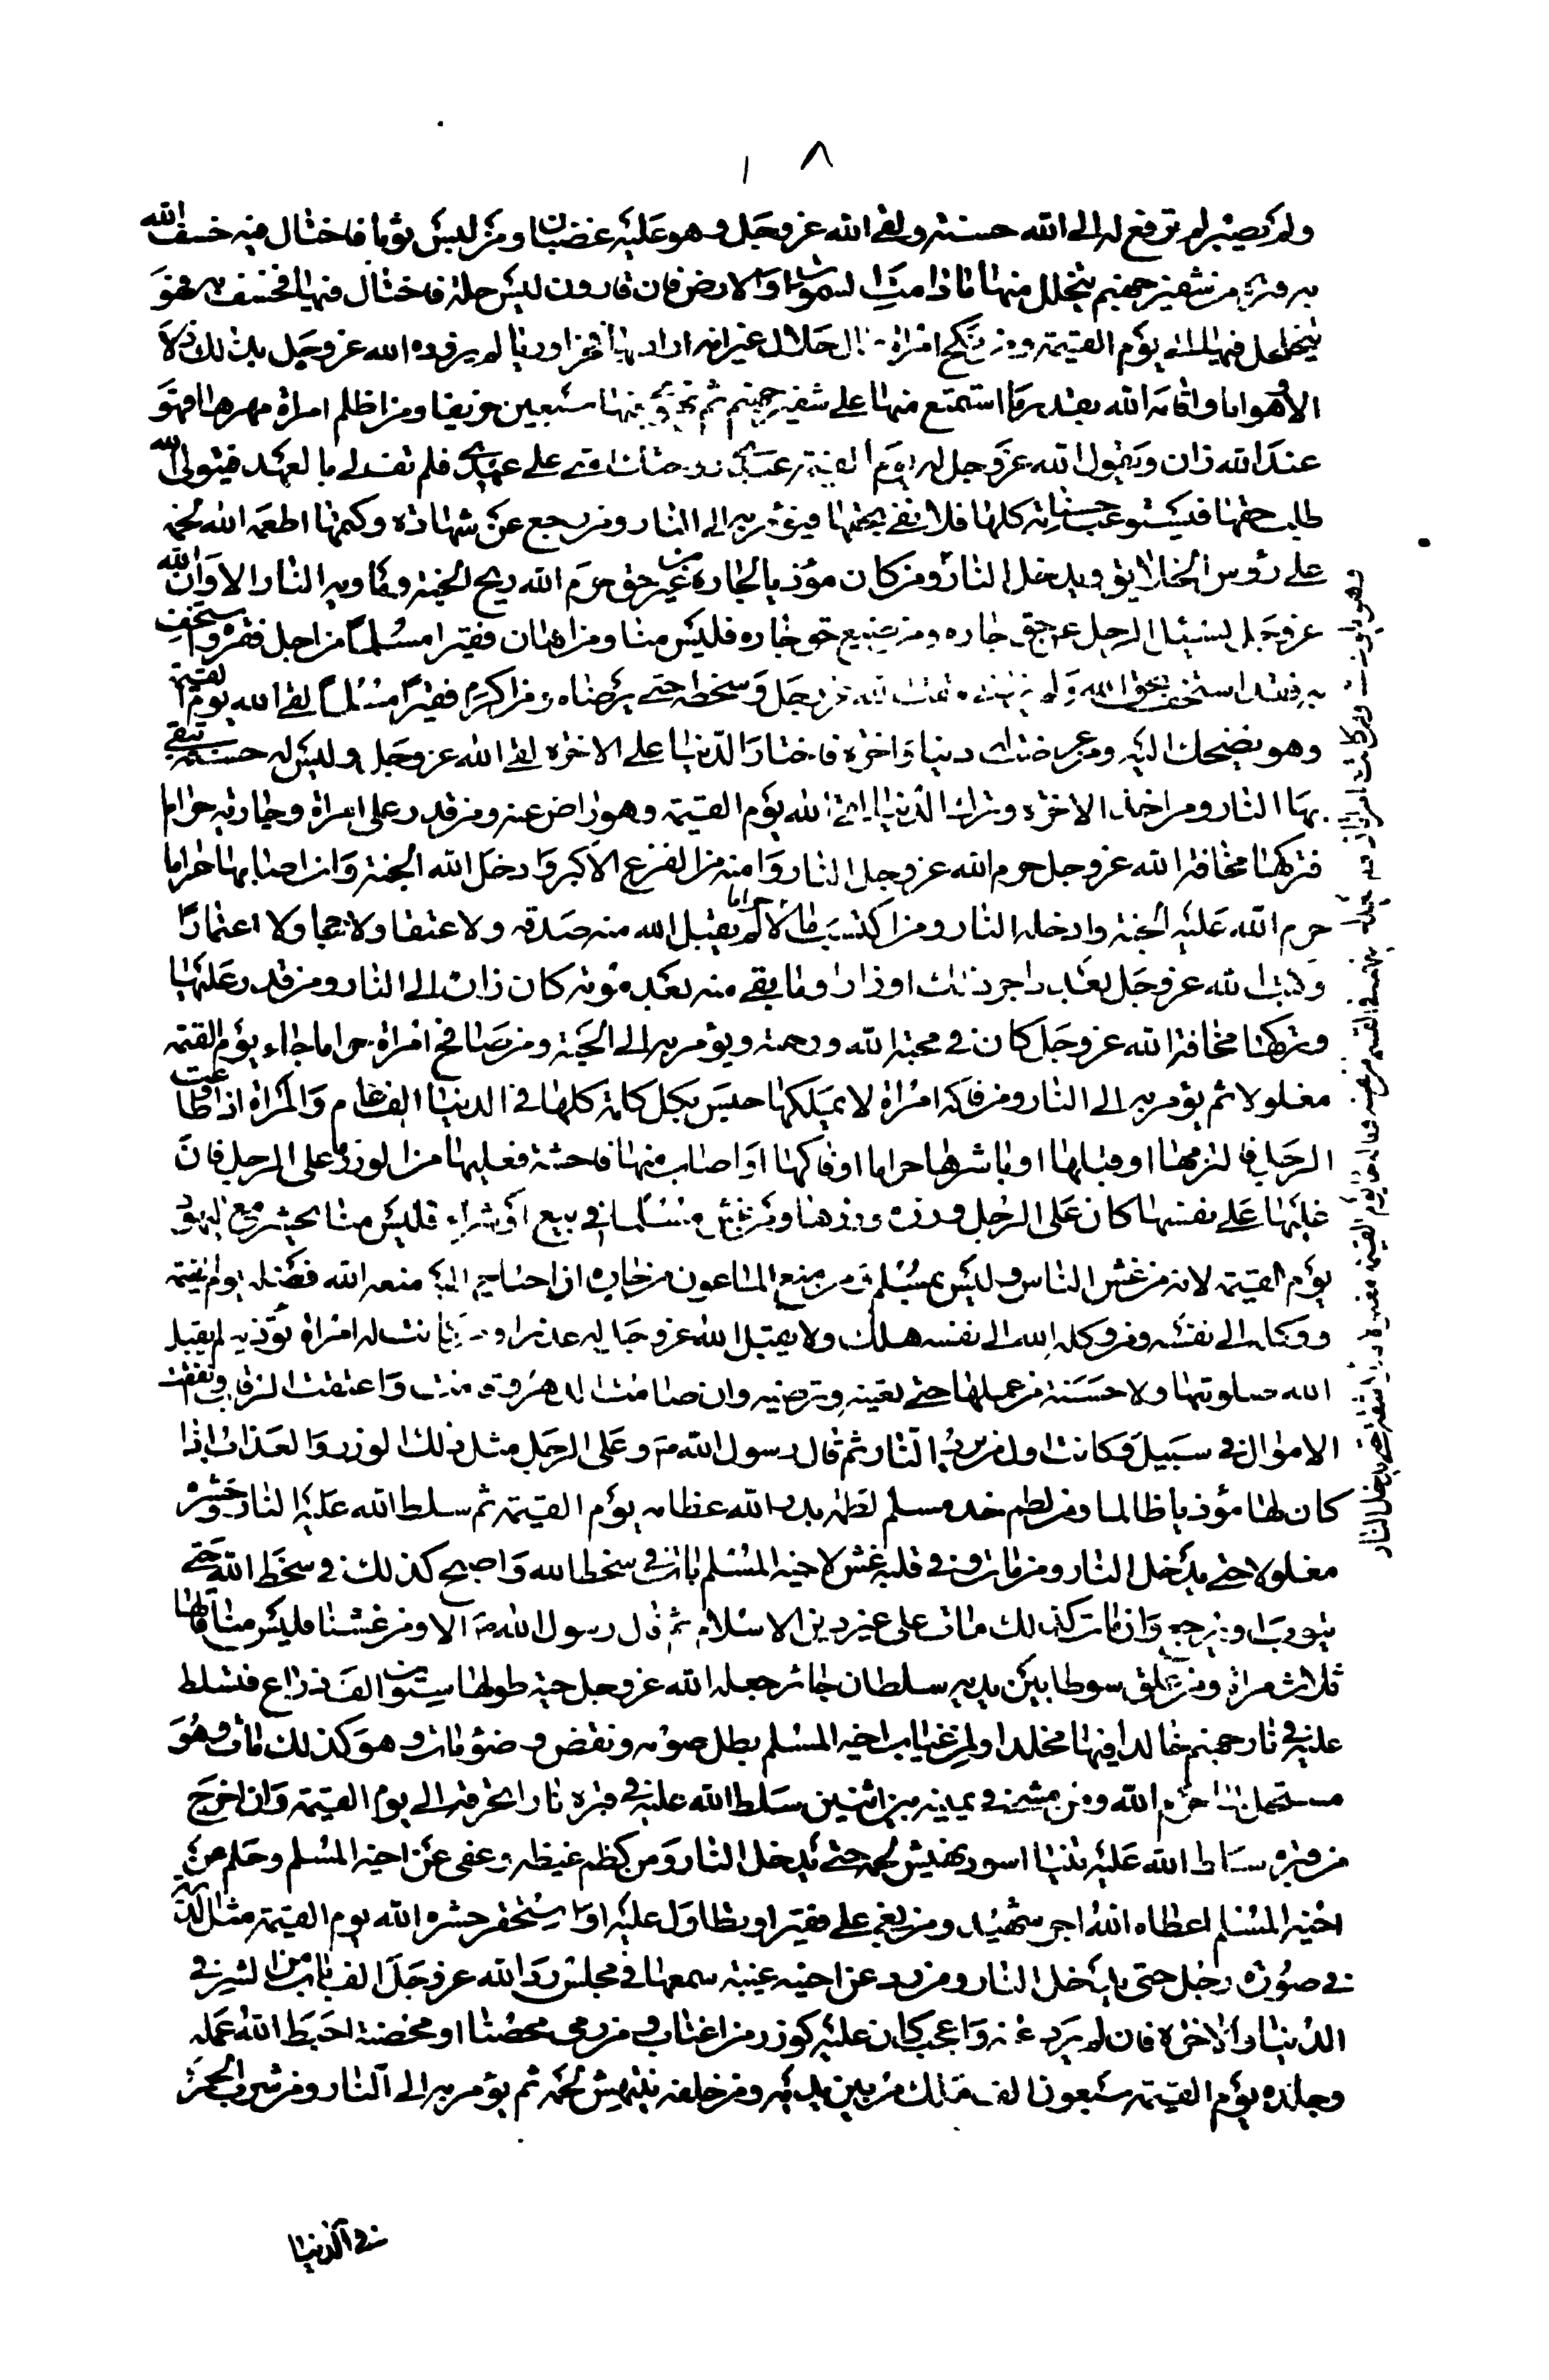 ١٨
ولم يصبر لم ترفع له الى الله حسنة ولقى الله عز وجل وهو عليه غضبان ومن لبس ثوبا فاختال فيه خسف الله
به قبره من شفير جهنم يتخلل منها ما دامت السموات والارض فان قارون لبس حلة فاختال فيها فخسف به فهو
يتخلخل فيها الى يوم القيمة ومن نكح امراة حلالا بمال حلال غير انه اراد بها فخرا وريا لم يزده الله عز وجل بذلك الا ذلا
الا هوانا واقامه الله بقدر ما استمتع منها على شفير جهنم ثم يهوى فيها سبعين خريفا ومن ظلم امراة مهرها فهو
عند الله زان ويقول الله عز وجل له يوم القيمة عبدى زوجتك امتى على عهدى فلم تف لى بالعهد فيتولى الله
طلب حقها فيستوعب حسناته كلها فلا تفى بحقها فيؤمر به الى النار ومن رجع عن شهادة وكتمها اطعمه الله لحمه
على رؤس الخلايق ويدخل النار ومن كان مؤذيا لجاره من غير حق حرم الله ريح الجنة وماويه النار الا وان الله
عز وجل ليسئل الرجل عن حق جاره ومن ضيع حق جاره فليس منا ومن اهان فقيرا مسلما من اجل فقره واستخف
به فقد استخف بحق الله ولم يزل فى مقت الله عز وجل وسخطه حتى يرضاه ومن اكرم فقيرا مسلما لقى الله يوم القيمة
وهو يضحك اليه ومن عرضت له دنيا واخرة فاختار الدنيا على الاخرة لقى الله عز وجل وليس له حسنة يتقى
بها النار ومن اخذ الاخرة وترك الدنيا لقى الله يوم القيمة وهو راض عنه ومن قدر على امراة وجارية حراما
فتركها مخافة الله عز وجل حرم الله عز وجل النار وامنه من الفزع الاكبر وادخل الله الجنة وان اصابها حراما
حرم الله عليه الجنة وادخله النار ومن اكتسب مالا حراما لم يقبل الله منه صدقة ولا عتقا ولا حجا ولا اعتمارا
وكتب الله عز وجل بعدد اجر ذلك اوزارا وما بقى منه بعد موته كان زاده الى النار ومن قدر عليها
وتركها مخافة الله عز وجل كان فى محبة الله ورحمته ويؤمر به الى الجنة ومن صافح امراة حراما جاء يوم القيمة
مغلولا ثم يؤمر به الى النار ومن فاكه امراة لا يملكها حبس بكل كلمة كلمها فى الدنيا الف عام والمراة اذا طاوعت
الرجل فالتزمها او قبلها او باشرها حراما او فاكهها او اصاب منها فاحشة فعليها من الوزر ما على الرجل فان
غلبها على نفسها كان على الرجل وزره ووزرها ومن غش مسلما فى بيع او شراء فليس منا يحشر مع اليهود
يوم القيمة لانه من غش الناس فليس بمسلم ومن منع الماعون من جاره اذا احتاج اليه منعه الله فضله يوم القيمة
ووكله الى نفسه ومن وكله الله الى نفسه هلك ولا يقبل الله عز وجل له عذرا ومن كانت له امراة تؤذيه لم يقبل
الله صلوتها ولا حسنة من عملها حتى تعينه وترضيه وان صامت الدهر وقامت واعتقت الرقاب وانفقت
الاموال فى سبيل وكانت اول من يرد النار ثم قال رسول الله ص وعلى الرجل مثل ذلك الوزر والعذاب اذا
كان لها مؤذيا ظالما ومن لطم خد مسلم لطمة بدد الله عظامه يوم القيمة ثم سلط الله عليه النار وحشره
مغلولا حتى يدخل النار ومن بات وفى قلبه غش لاخيه المسلم بات فى سخط الله واصبح كذلك فى سخط الله حتى
يتوب او يرجع وان مات كذلك مات على غير دين الاسلام ثم قال رسول الله ص الا ومن غشنا فليس منا قالها
ثلاث مرات ومن علق سوطا بين يديه سلطان جائر جعله الله عز وجل حية طولها ستون الف ذراع فتسلط
عليه فى نار جهنم خالدا فيها مخلدا ومن اغتاب اخيه المسلم بطل صومه ونقض وضوئه فان مات وهو كذلك مات وهو
مستحل لما حرم الله ومن مشى فى نميمة بين اثنين سلط الله عليه فى قبره نارا تحرقه الى يوم القيمة وان اخرج
من قبره سلط الله عليه تنينا اسود ينهش لحمه حتى يدخل النار ومن كظم غيظه وعفى عن اخيه المسلم وحلم عن
اخيه المسلم اعطاه الله اجر شهيد ومن بغى على فقير او تطاول عليه او استحقره حشره الله يوم القيمة مثل الذرة
فى صورة رجل حتى يدخل النار ومن رد عن اخيه غيبة سمعها فى مجلس رد الله عز وجل الف باب من الشر فى
الدنيا والاخرة فان لم يرد عنه واعجبه كان عليه كوزر من اغتاب ومن رمى محصنا او محصنة احبط الله عمله
وجلده يوم القيمة سبعون الف ملك من بين يديه ومن خلفه تنهش لحمه ثم يؤمر به الى النار ومن شرب الخمر
فى الدنيا